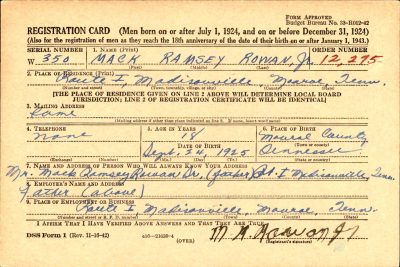 FORM APPROVED
Budget Bureau No. 33-R012-42
REGISTRATION CARD (Men born on or after July 1, 1924, and on or before December 31, 1924)
(Also for the registration of men as they reach the 18th anniversary of the date of their birth on or after January 1, 1943.)
SERIAL NUMBER 1. NAME (Print) ORDER NUMBER
W 350 MACK RAMSEY ROWAN, Jr. 12,275
(First) (Middle) (Last)
2. PLACE OF RESIDENCE (Print)
Route 1, Madisonville, Monroe, Tenn.
(Number and street) (Town, township, village, or city) (County) (State)
[THE PLACE OF RESIDENCE GIVEN ON LINE 2 ABOVE WILL DETERMINE LOCAL BOARD
JURISDICTION; LINE 2 OF REGISTRATION CERTIFICATE WILL BE IDENTICAL]
3. MAILING ADDRESS
Same
(Mailing address if other than place indicated on line 2. If same, insert word same)
4. TELEPHONE 5. AGE IN YEARS 6. PLACE OF BIRTH
none 18 Monroe County
DATE OF BIRTH (Town or county)
Sept. 24, 1925 Tennessee
(Exchange) (Number) (Mo.) (Day) (Yr.) (State or country)
7. NAME AND ADDRESS OF PERSON WHO WILL ALWAYS KNOW YOUR ADDRESS
Mr. Mack Ramsey Rowan Sr. (father) Rt. 1 Madisonville, Tenn.
8. EMPLOYER'S NAME AND ADDRESS
Father (above)
9. PLACE OF EMPLOYMENT OR BUSINESS
Route 1, Madisonville, Monroe, Tenn.
(Number and street or R. F. D. number) (Town) (County) (State)
I AFFIRM THAT I HAVE VERIFIED ABOVE ANSWERS AND THAT THEY ARE TRUE.
DSS Form 1 (Rev. 11-16-42) (OVER) M. R. Rowan Jr
(Registrant's signature)